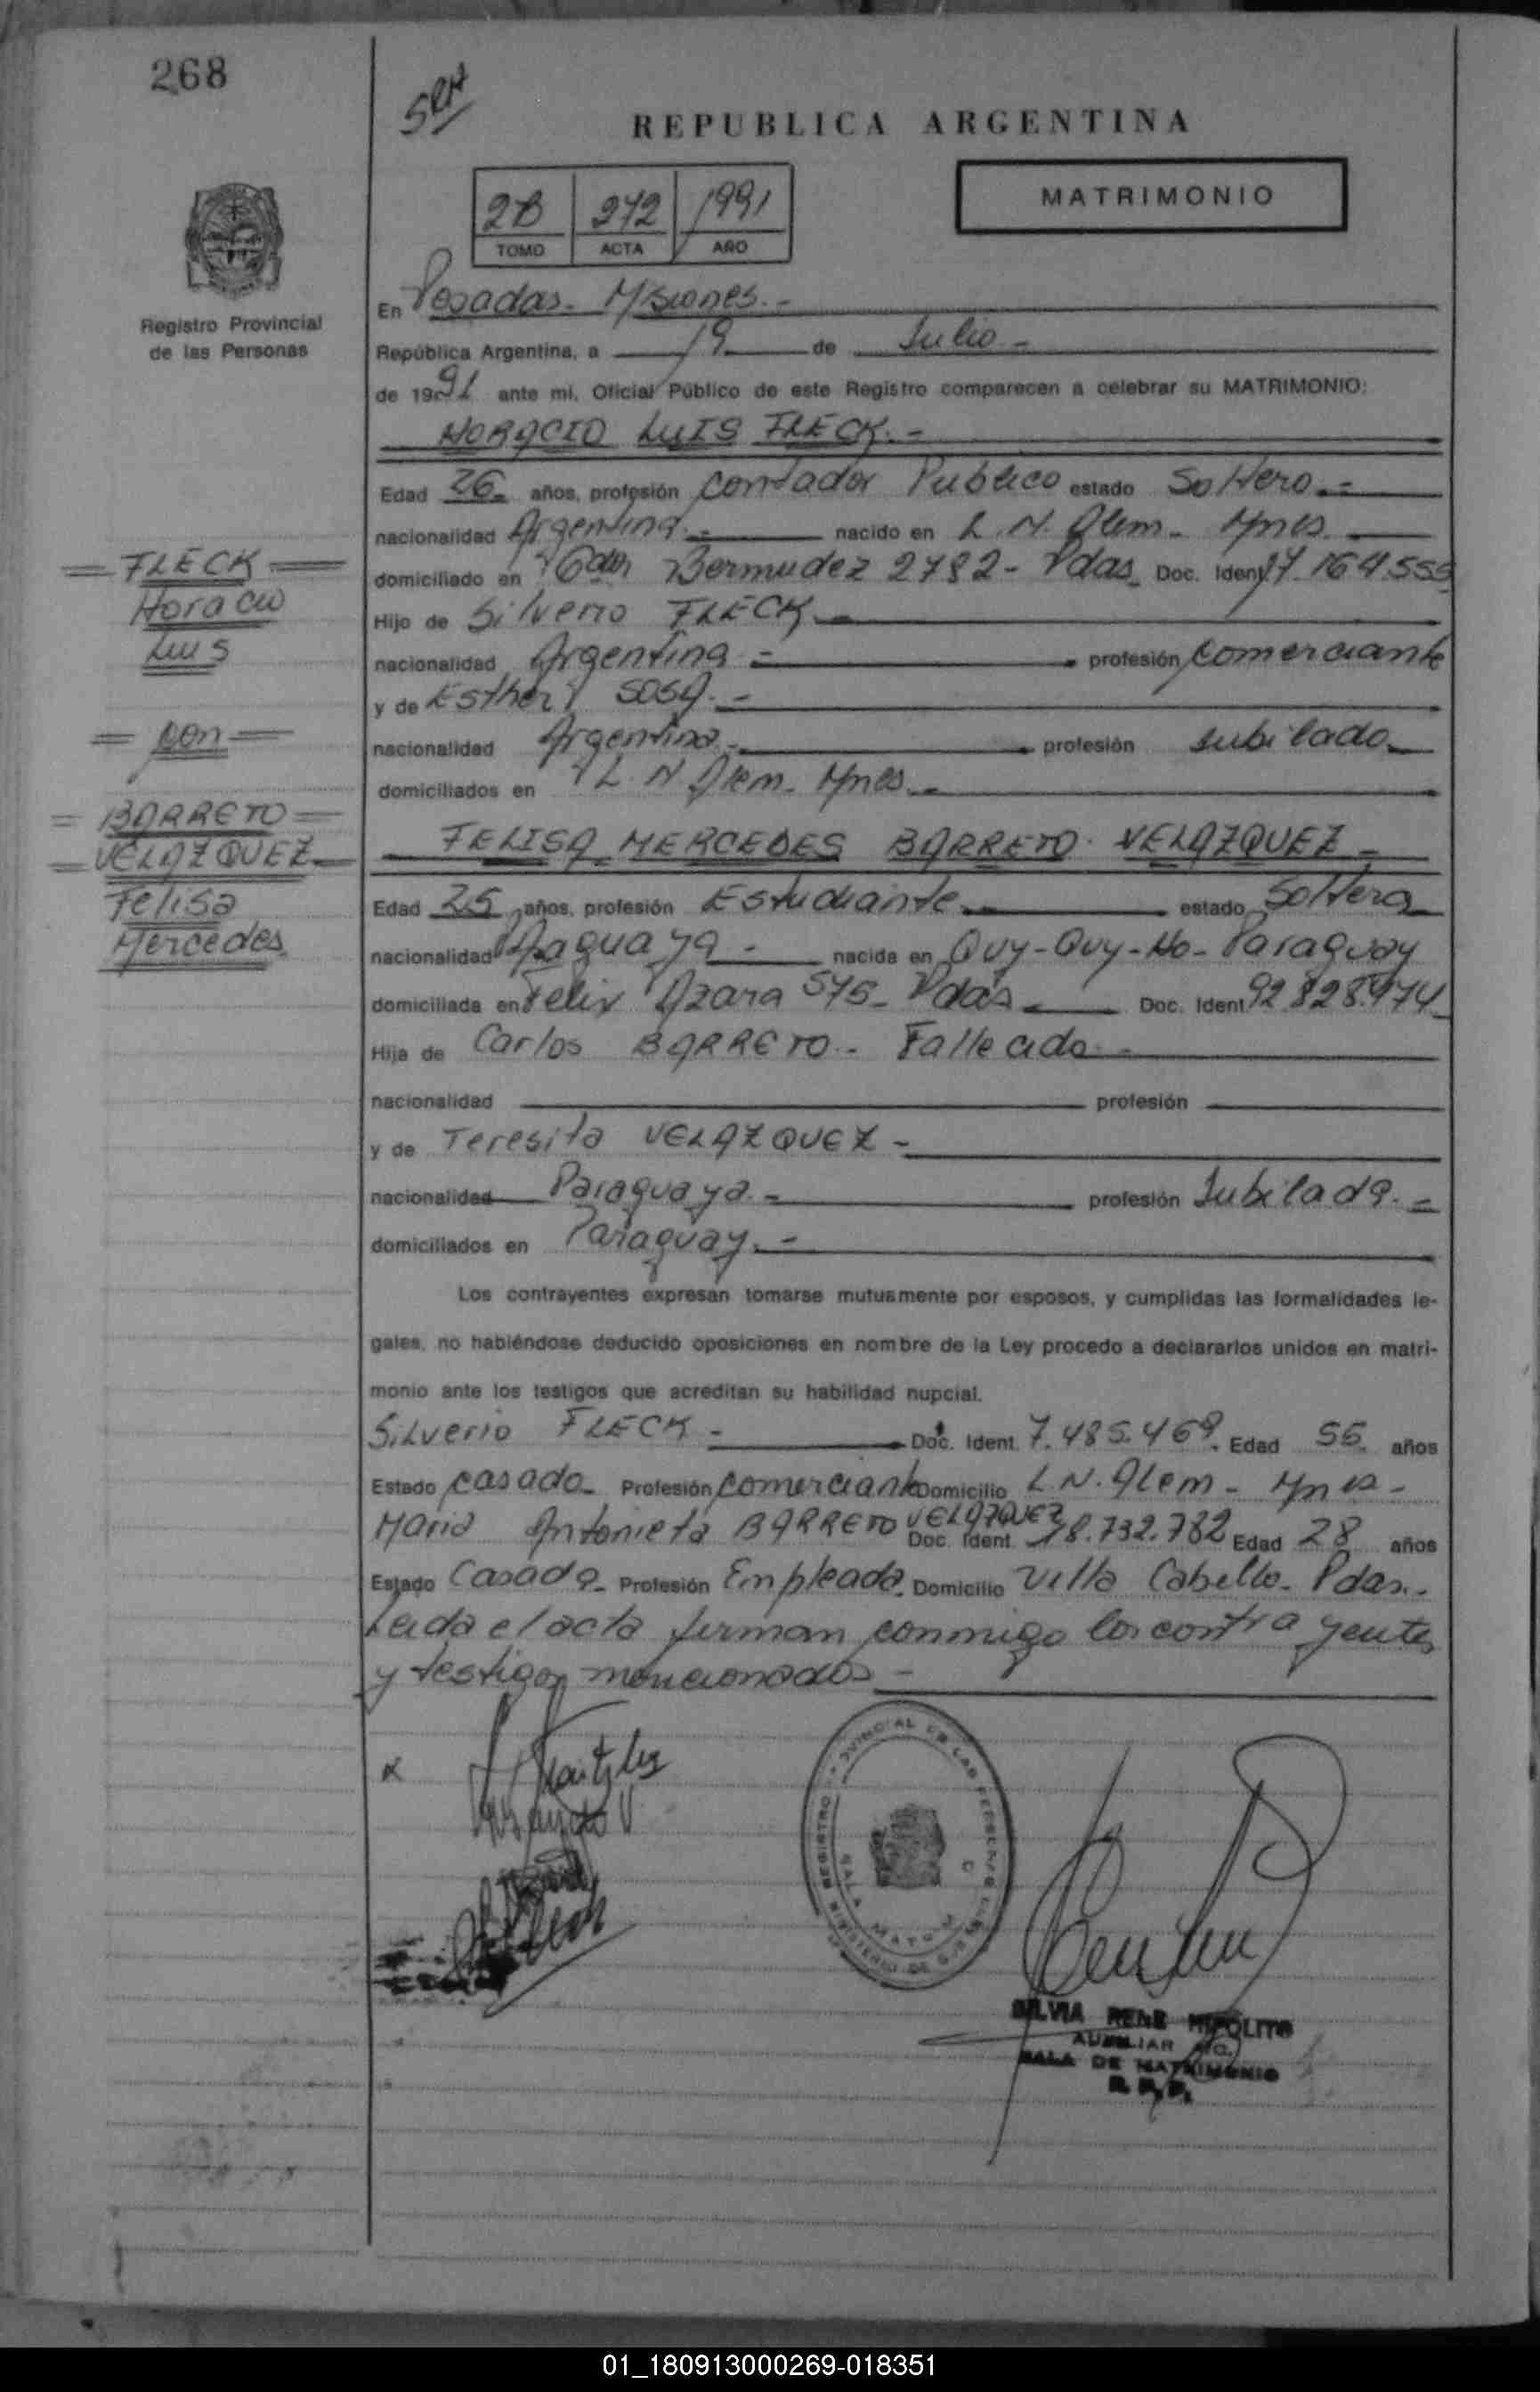 268
REPUBLICA ARGENTINA
MATRIMONIO
2B 242 1991
TOMO ACTA AÑO
Registro Provincial
de las Personas
En Posadas - Misiones.-
República Argentina, a 19 de Julio -
de 1991 ante mi, Oficial Público de este Registro comparecen a celebrar su MATRIMONIO:
HORACIO LUIS FLECK.-
Edad 26 años, profesión Contador Publico estado Soltero.-
nacionalidad Argentina.- nacido en L. N. Alem - Mnes.
FLECK
domiciliado en Bermudez 2782 - Pdas Doc. Ident. 17.164.555
Horacio
Hijo de Silverio FLECK.-
Luis
nacionalidad Argentina - profesión comerciante
y de Esther SOSA.-
= con =
nacionalidad Argentina.- profesión Jubilado
domiciliados en L. N. Alem - Mnes.-
= BARRETO =
= VELAZQUEZ
FELISA MERCEDES BARRETO VELAZQUEZ -
Felisa
Edad 25 años, profesión Estudiante estado Soltera
Mercedes
nacionalidad Paraguaya - nacida en Quy-Quy-Ho - Paraguay
domiciliada en Felix Azara 575 - Pdas Doc. Ident. 92.828.974
Hija de Carlos BARRETO - Fallecido -
nacionalidad profesión
y de Teresita VELAZQUEZ -
nacionalidad Paraguaya.- profesión Jubilada.-
domiciliados en Paraguay.-
Los contrayentes expresan tomarse mutuamente por esposos, y cumplidas las formalidades le-
gales, no habiéndose deducido oposiciones en nombre de la Ley procedo a declararlos unidos en matri-
monio ante los testigos que acreditan su habilidad nupcial.
Silverio FLECK - Doc. Ident. 7.485.469 Edad 56 años
Estado casado Profesión comerciante Domicilio L.N. Alem - Mnes -
Maria Antonieta BARRETO VELAZQUEZ Doc. Ident. 18.732.782 Edad 28 años
Estado Casada Profesión Empleada Domicilio Villa Cabello - Pdas.-
Leida el acta firman conmigo los contrayentes
y testigos mencionados -
SILVIA RENE HIPOLITO
AUXILIAR
SALA DE MATRIMONIO
R. P. P.
01_180913000269-018351